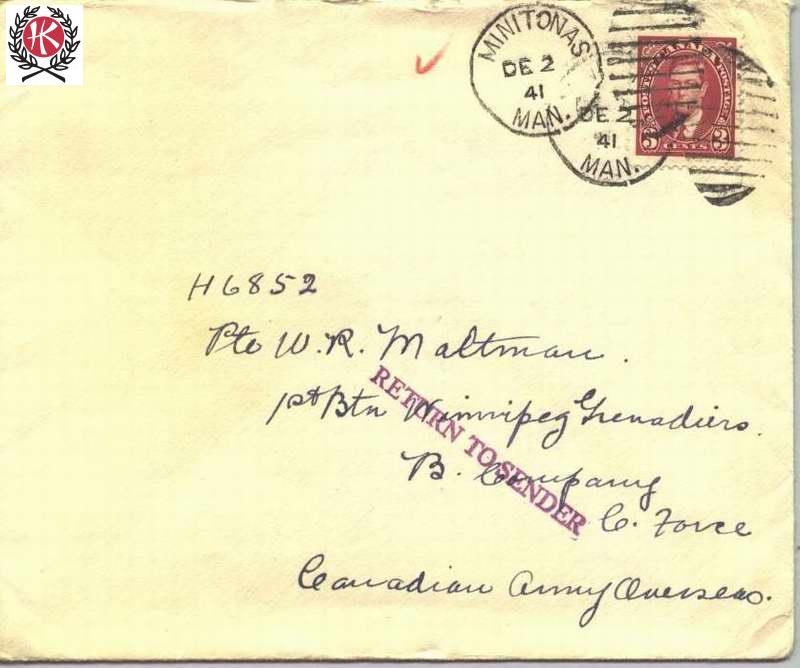 HK
MINITONAS
DE 2
41
MAN.
DE 2
41
MAN.
POSTES CANADA POSTAGE
3 CENTS 3
H6852
Pte W. R. Maltman.
1st Btn Winnipeg Grenadiers.
RETURN TO SENDER
B. Company
C. Force
Canadian Army Overseas.